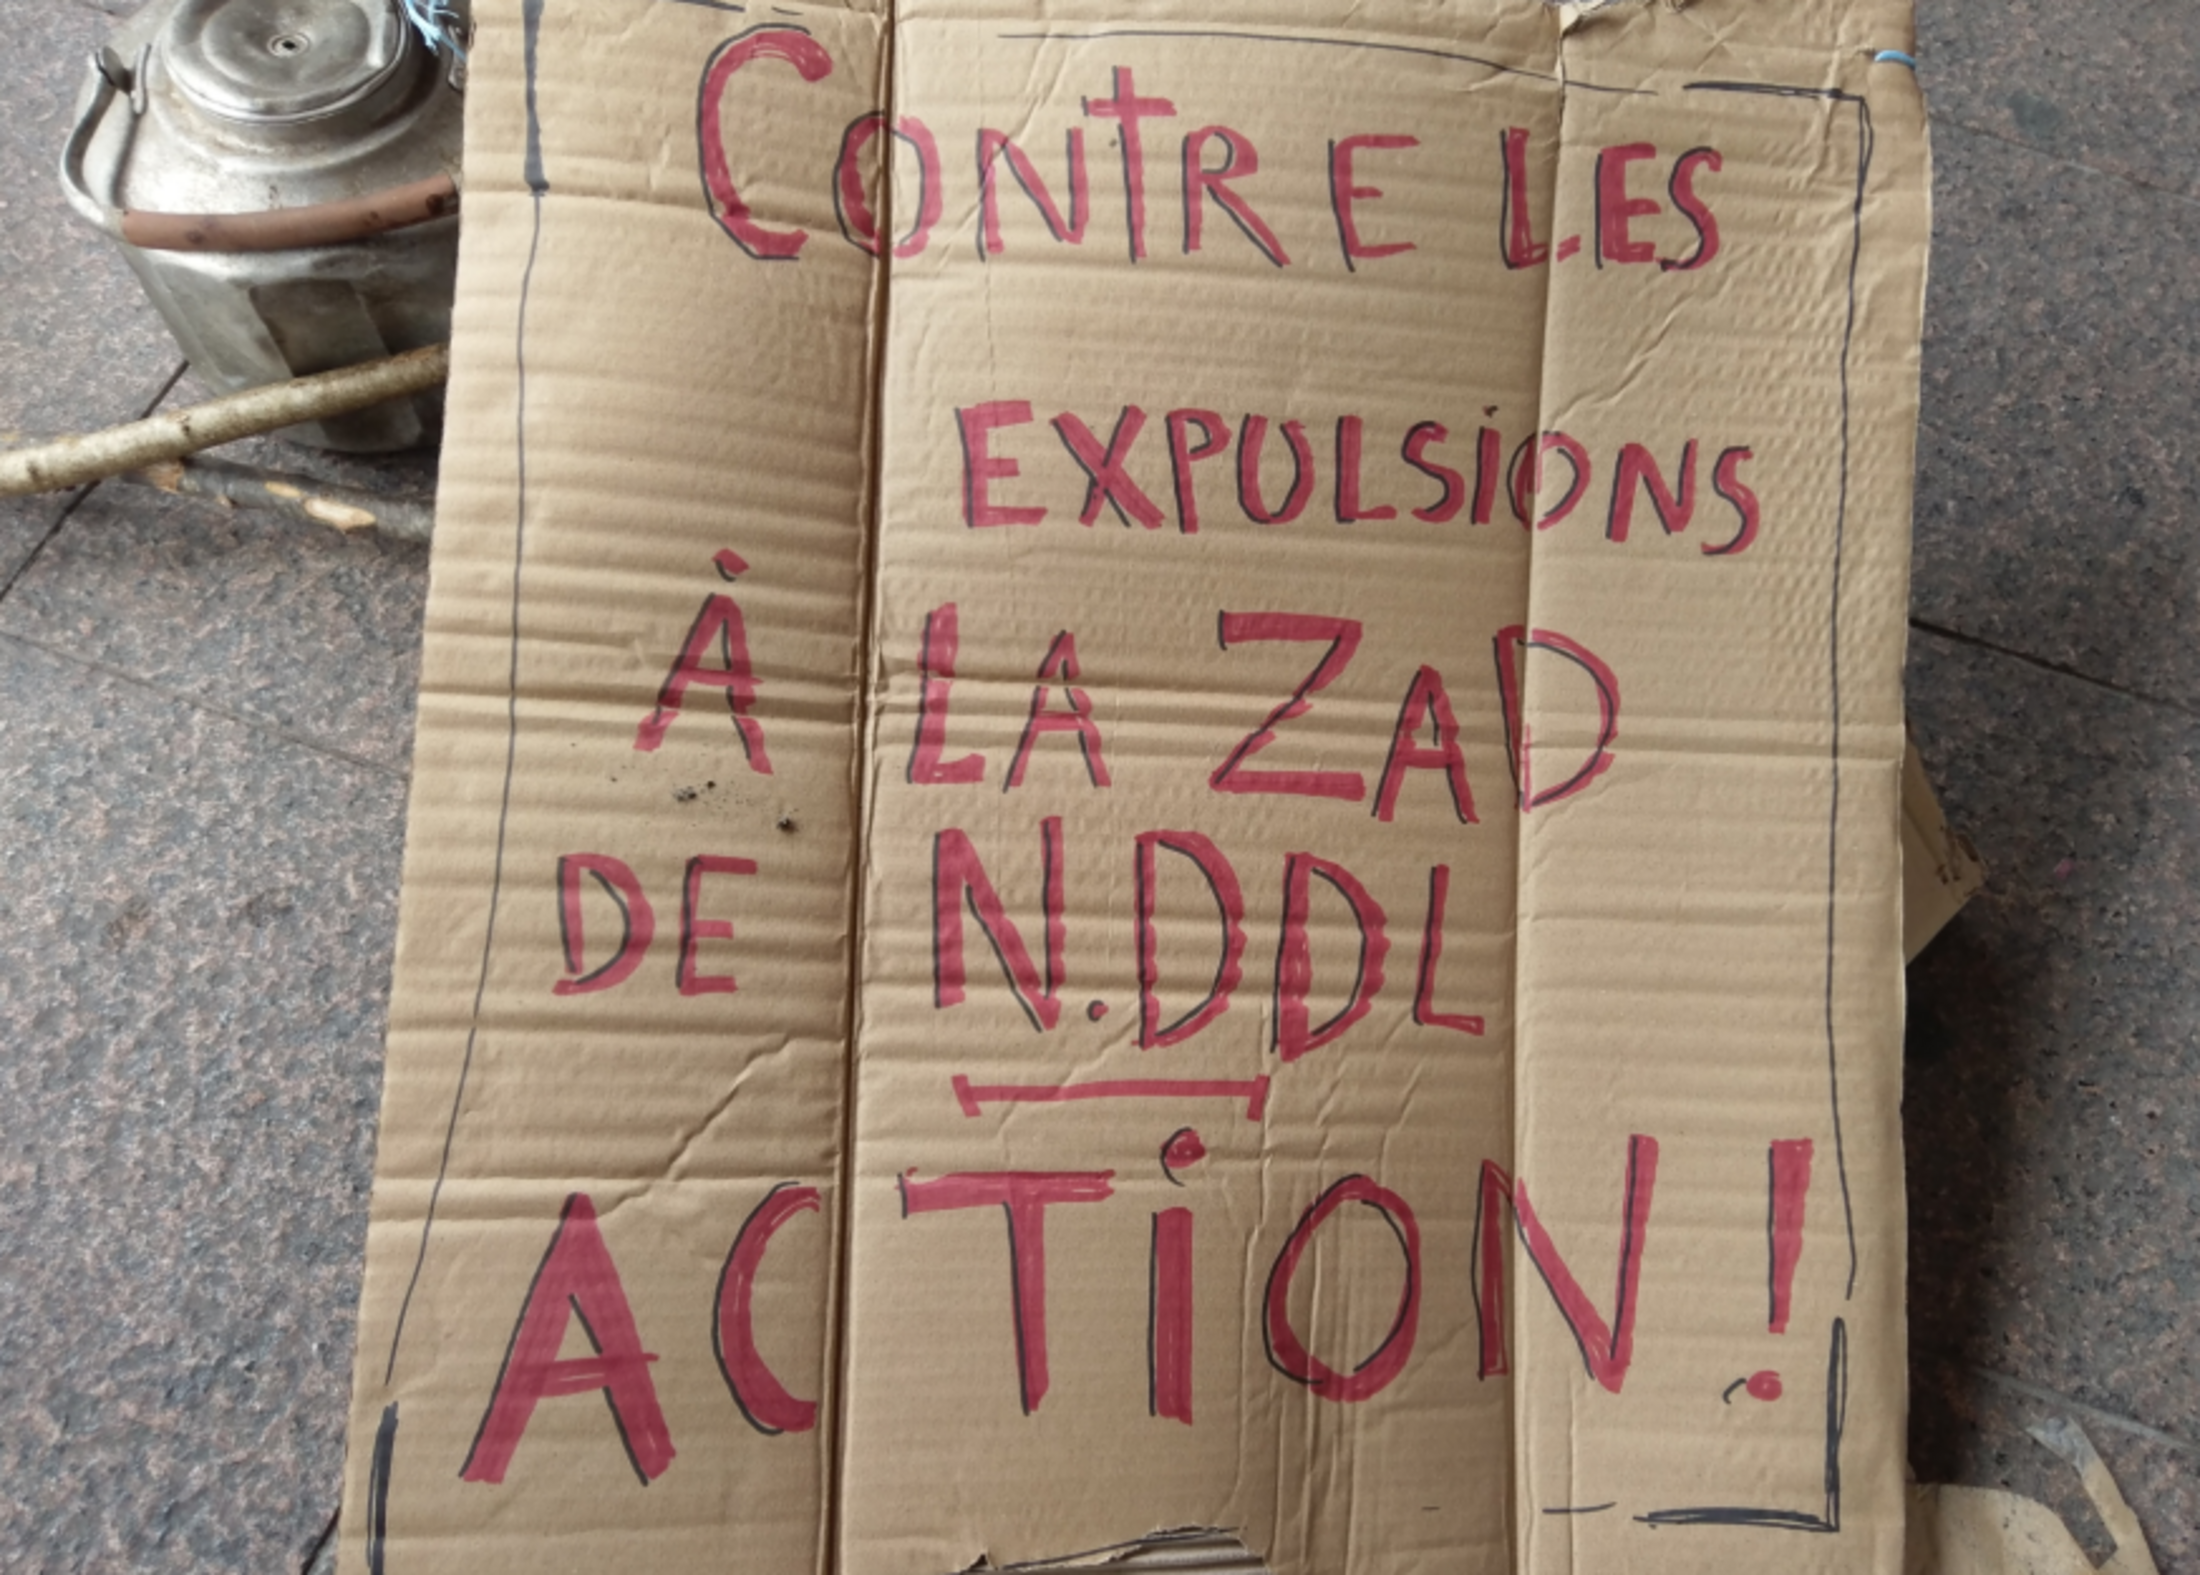 CONTRE LES
EXPULSiONS
À LA ZAD
DE N.DDL
ACTiON !